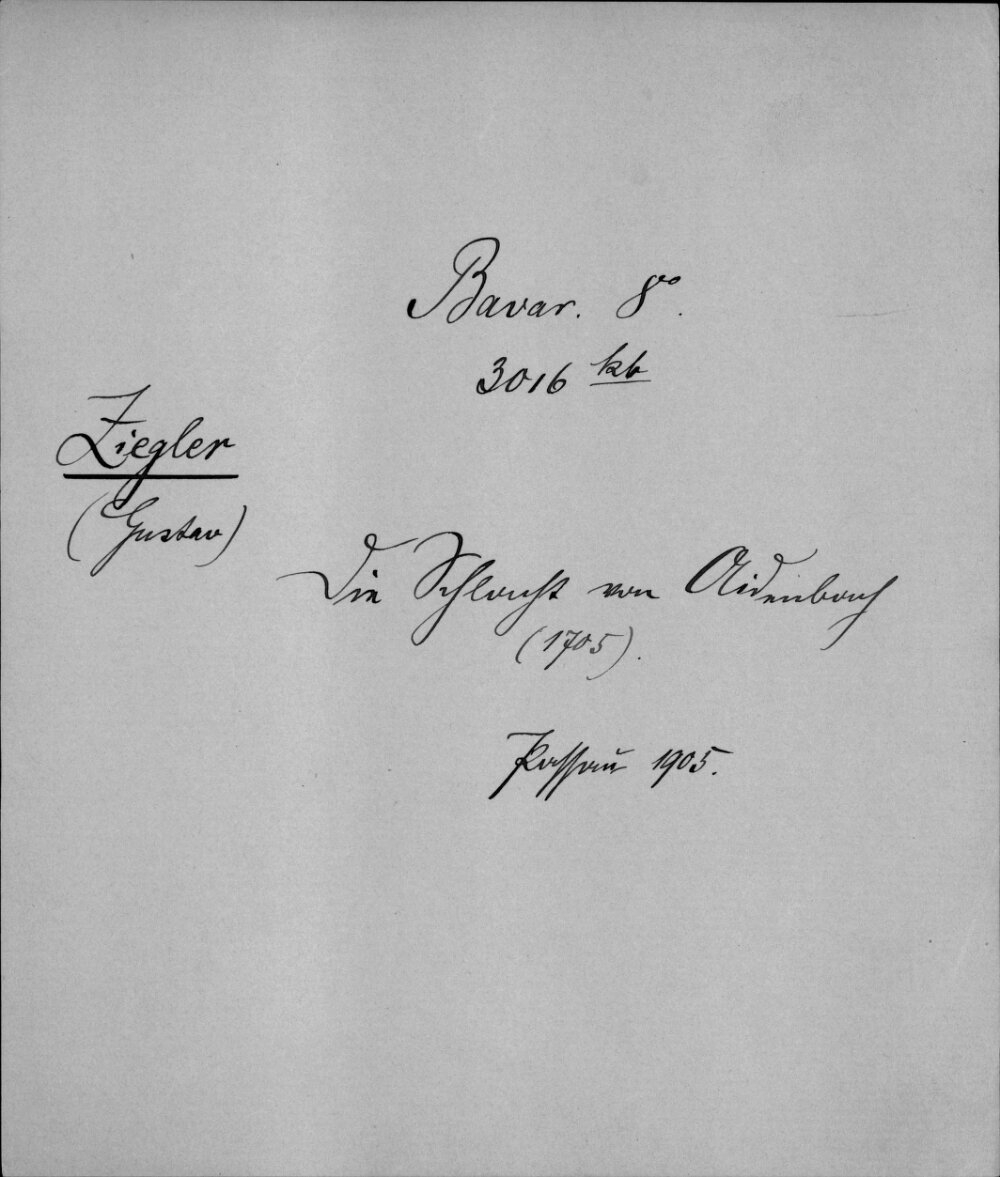 Bavar. 8°.
3016 kb
Ziegler
(Gustav)
Die Schlacht von Aidenbach
(1705).
Passau 1905.